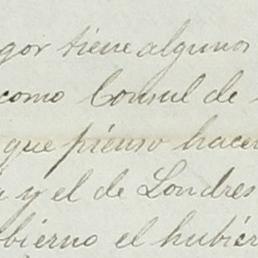 gor tiene algunos
como Consul de
que pienso hacer
y el de Londres
bierno el hubier